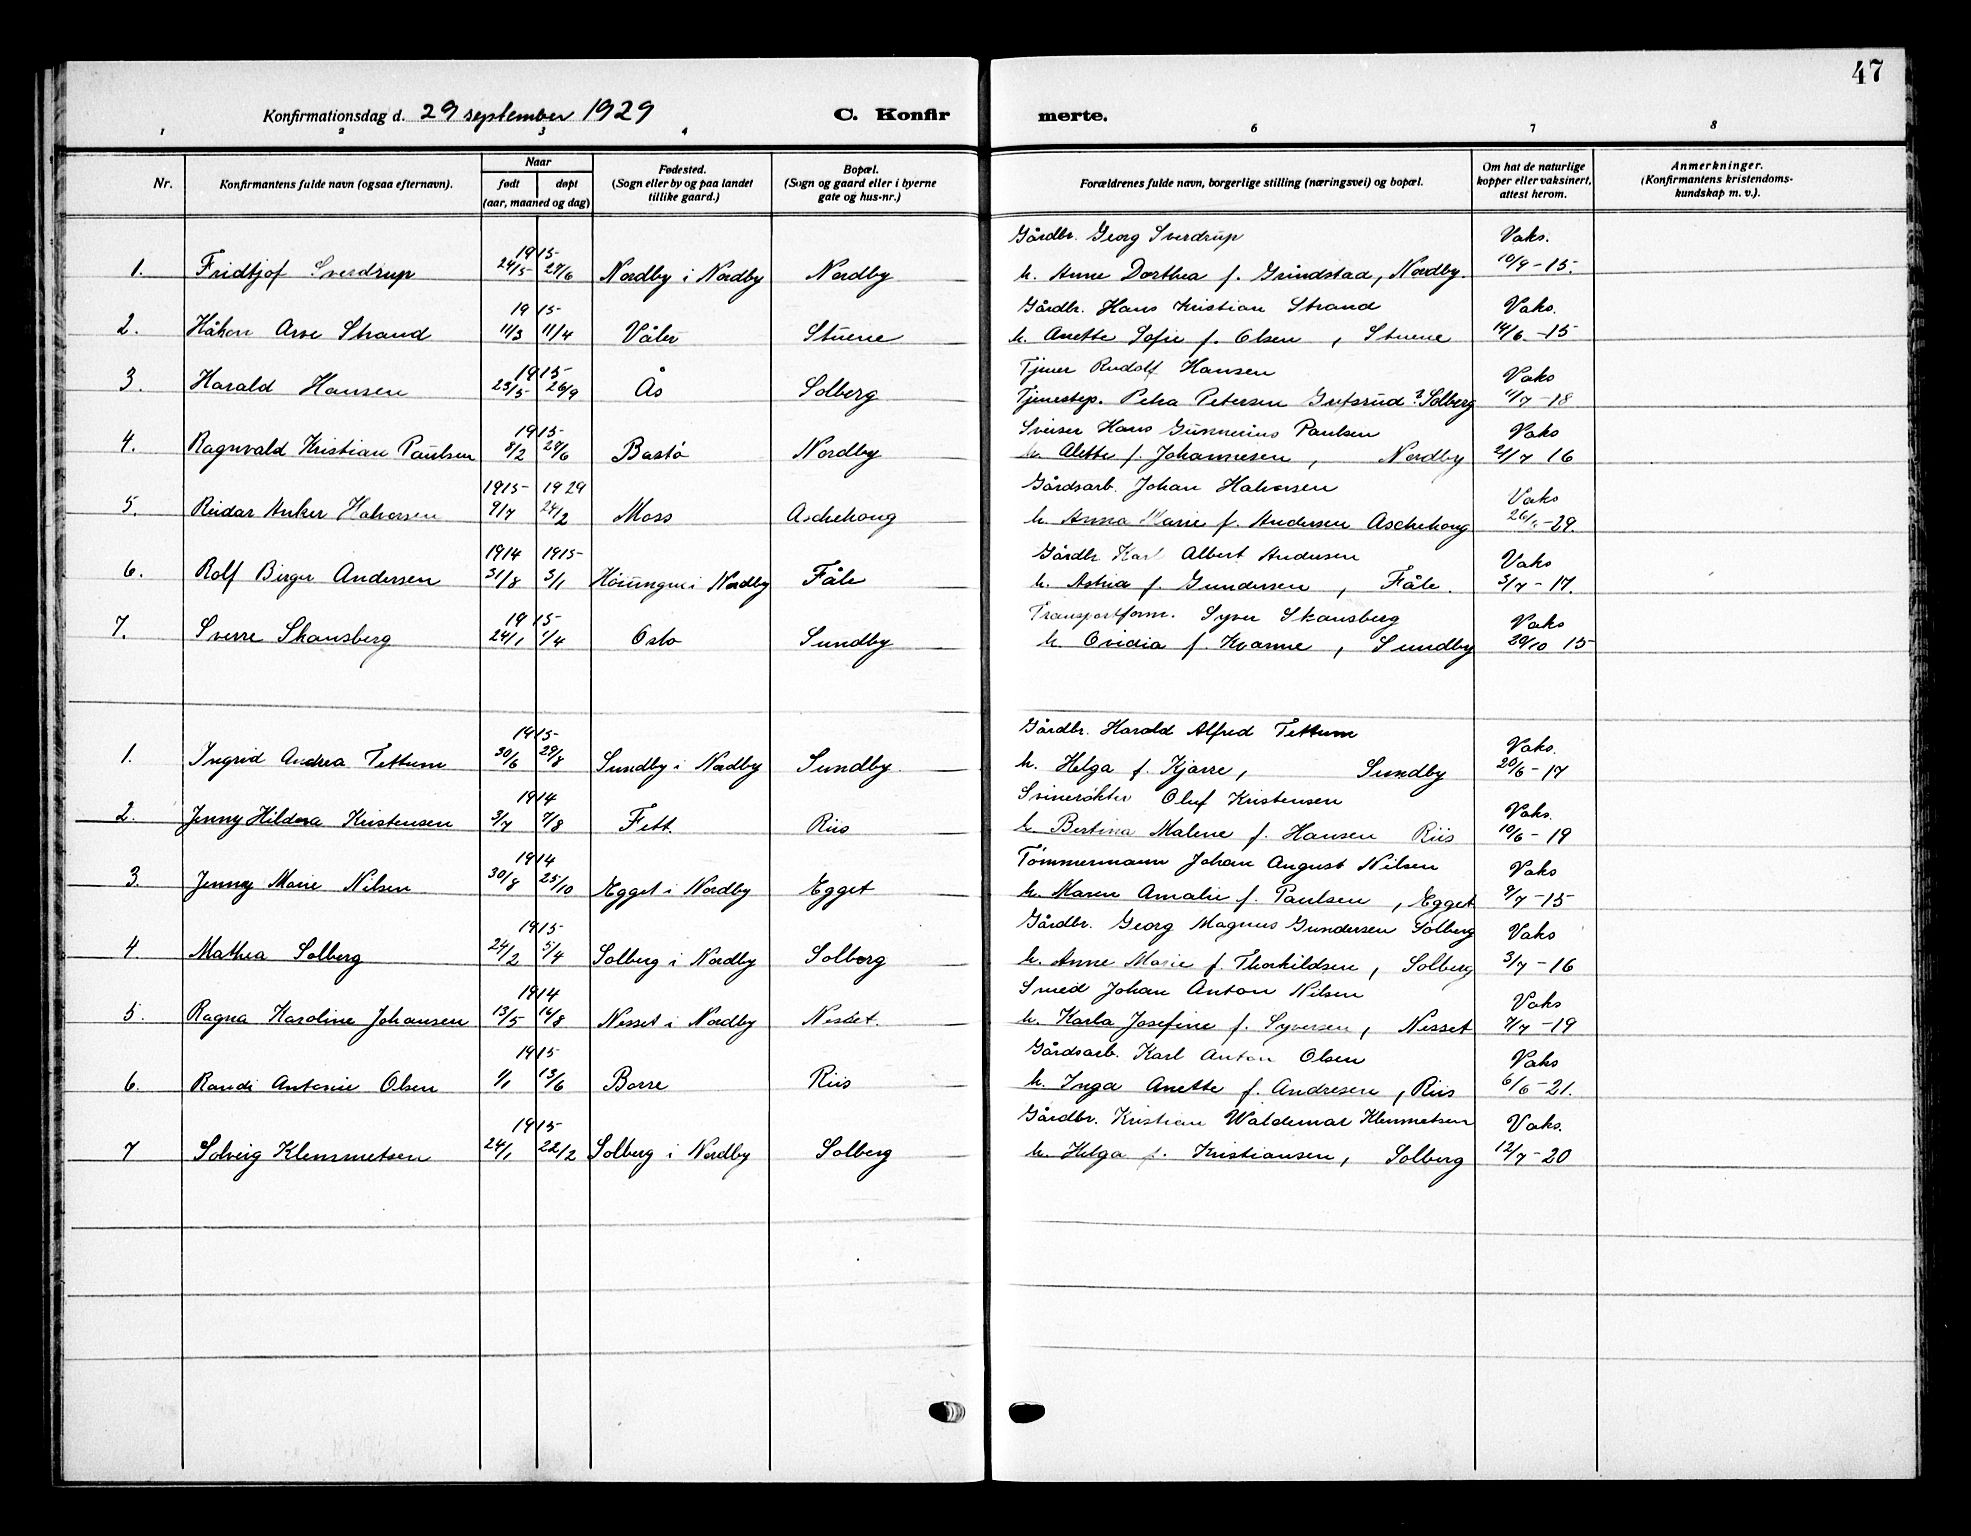 47
Konfirmationsdag d. 29 september 1929
C. Konfir merte.
1 2 3 4 6 7 8
Nr. Konfirmantens fulde navn (ogsaa efternavn). Naar født døpt (aar, maaned og dag) Fødested. (Sogn eller by og paa landet tillike gaard.) Bopæl. (Sogn og gaard eller i byerne gate og hus-nr.) Forældrenes fulde navn, borgerlige stilling (næringsvei) og bopæl. Om hat de naturlige kopper eller vaksinert, attest herom. Anmerkninger. (Konfirmantens kristendoms- kundskap m. v.).
1915 Gårdbr. Georg Sverdrup Vaks.
1. Fridtjof Sverdrup 24/5 27/6 Nordby i Nordby Nordby h. Anne Dorthea f. Grindstad, Nordby. 10/9-15.
1915 Gårdbr. Hans Kristian Strand Vaks.
2. Håkon Arve Strand 11/3 11/4 Våler Stuene h. Anette Sofie f. Olsen, Stuene 14/6-15
1915 Tjener Rudolf Hansen Vaks
3. Harald Hansen 23/5 26/9 Ås Solberg Tjenestep. Petra Petersen Solberg 11/7-18
1915 Sveiser Hans Gunnerius Paulsen Vaks
4. Ragnvald Kristian Paulsen 8/2 27/6 Bastø Nordby h. Alette f. Johannesen, Nordby 2/7 16
1915 1929 Gårdsarb. Johan Halvorsen Vaks
5. Reidar Anker Halvorsen 9/7 24/2 Moss Aschehoug h. Anna Marie f. Andersen Aschehoug -29.
1914 1915 Gårdbr. Karl Albert Andersen Vaks
6. Rolf Birger Andersen 31/8 3/1 i Nordby Fåle h. Astrid f. Gundersen, Fåle. 3/7-17.
1915 Transportform. Syver Skansberg Vaks
7. Sverre Skansberg 24/1 1/4 Oslo Sundby h. Ovidia f. Kvarme, Sundby 20/10 15
1915 Gårdbr. Harald Alfred Tettum Vaks.
1. Ingrid Andrea Tettum 30/6 29/8 Sundby i Nordby Sundby. h. Helga f. Kjærre, Sundby 20/6-17
1914 Svinerøkter Oluf Kristensen Vaks.
2. Jenny Hildora Kristensen 3/7 9/8 Fett Riis h. Bertina Malene f. Hansen Riis 10/6-19
1914 Tømmermann Johan August Nilsen Vaks
3. Jenny Marie Nilsen 30/8 25/10 Egget i Nordby Egget h. Maren Amalie f. Paulsen, Egget 9/7-15
1915 Gårdbr. Georg Magnus Gundersen Solberg Vaks
4 Mathea Solberg 24/2 5/4 Solberg i Nordby Solberg h. Anne Marie f. Thorkildsen, Solberg 3/7-16
1914 Smed Johan Anton Nilsen Vaks
5. Ragna Karoline Johansen 13/5 16/8 Nesset i Nordby Nesset. h. Karla Josefine f. Syversen, Nesset 7/7-19
1915 Gårdsarb. Karl Anton Olsen Vaks
6. Randi Antonie Olsen 1/1 13/6 Borre Riis h. Inga Anette f. Andresen, Riis 6/6-21.
1915 Gårdbr. Kristian Waldemar Klemmetsen Vaks.
7 Solveig Klemmetsen 24/1 22/2 Solberg i Nordby Solberg h. Helga f. Kristiansen, Solberg 12/7-20